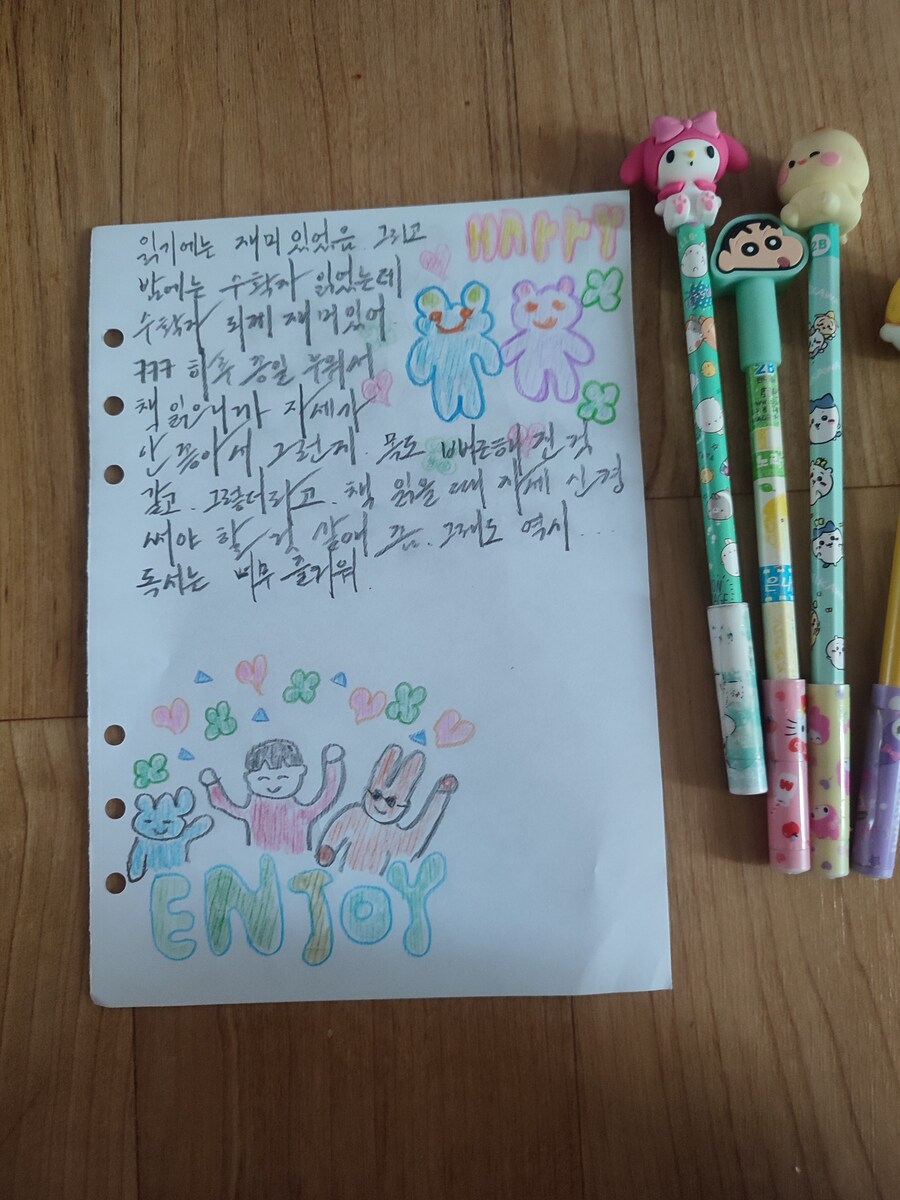 HAPPY
읽기에는 재미있었음 그리고
밤에는 수학자 읽었는데
수학자 되게 재미있어
ㅋㅋㅋ 하루 종일 누워서
책 읽으니까 자세가
안 좋아서 그런지 몸도 뻐근해진 것
같고. 그렇더라고. 책 읽을 때 자세 신경
써야 할 것 같애 좀. 그래도 역시...
독서는 너무 즐거워.
ENJOY
2B
2B